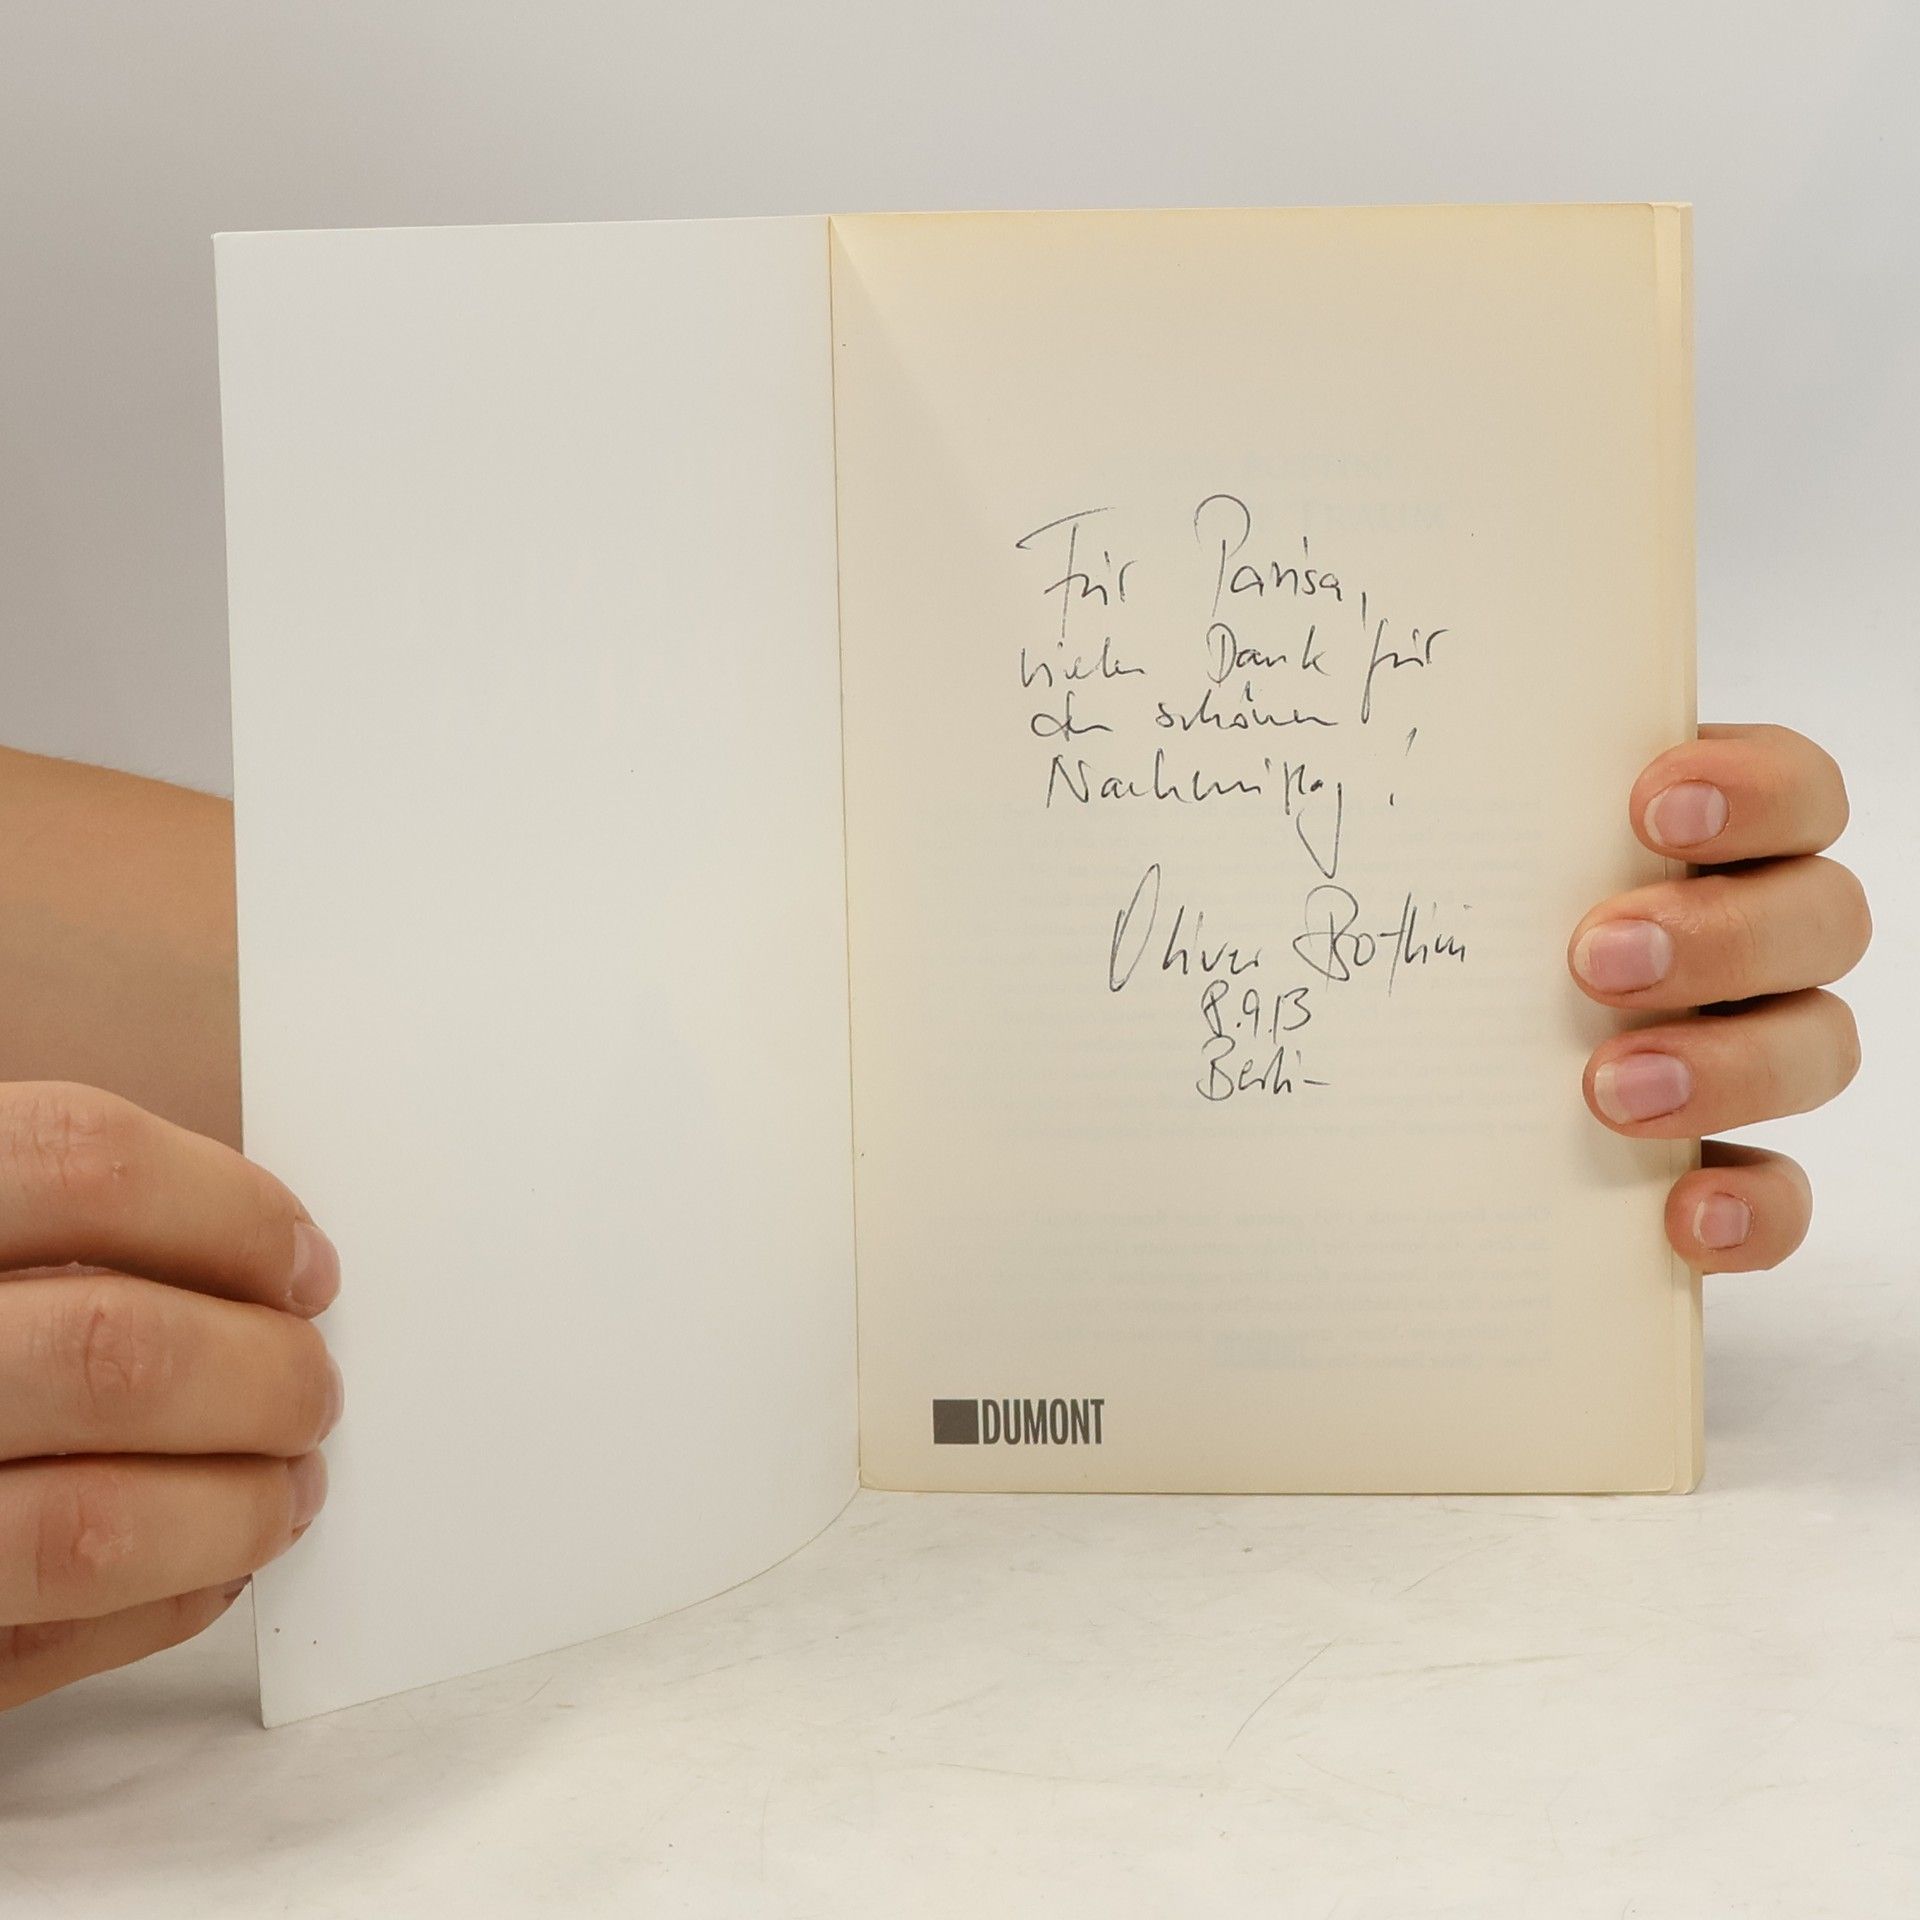 Für Parisa,
vielen Dank für
den schönen
Nachmittag!
Oliver Bottini
8.9.13
Berlin
DUMONT